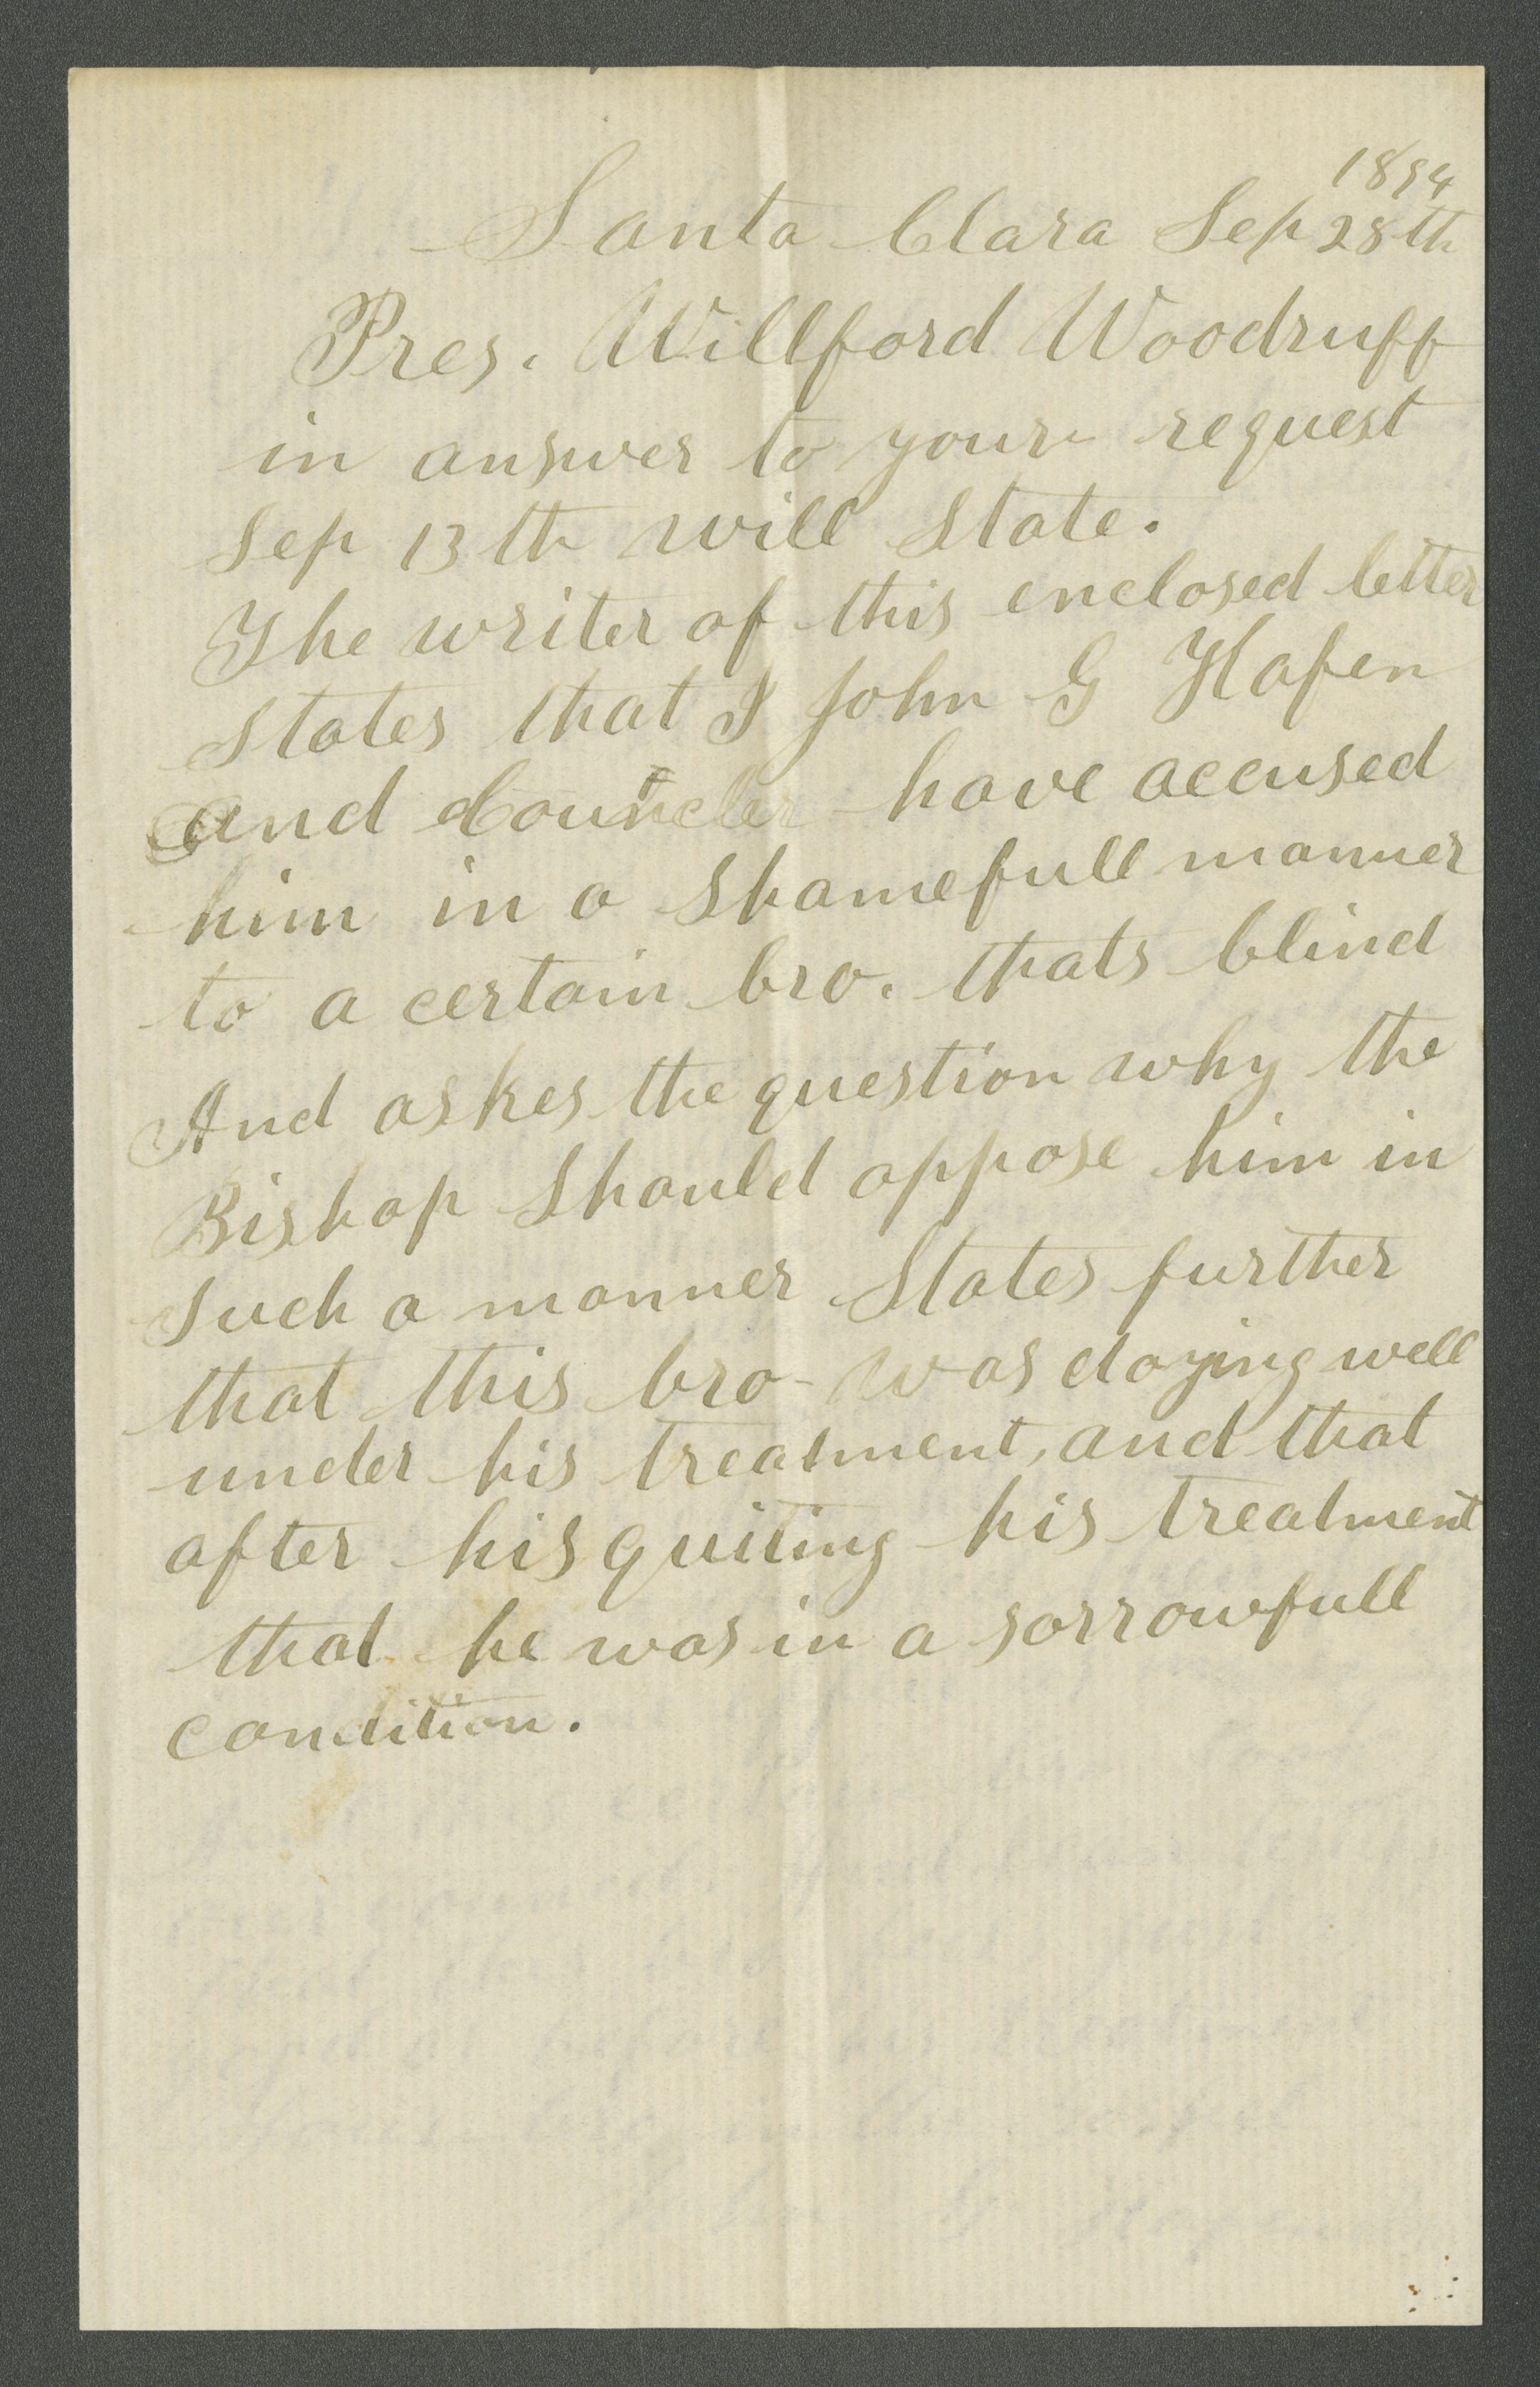 1894
Santa Clara Sep 28th
Pres. Willford Woodruff
in answer to your request
Sep 13th will State.
The writer of this enclosed letter
States that I John G Hafen
and Counceler have accused
him in a Shamefull manner
to a certain bro. thats blind
And askes the question why the
Bishop Should oppose him in
Such a manner States further
that this bro- was doying well
under his treatment, and that
after his quiting his treatment
that he was in a sorrowfull
condition.